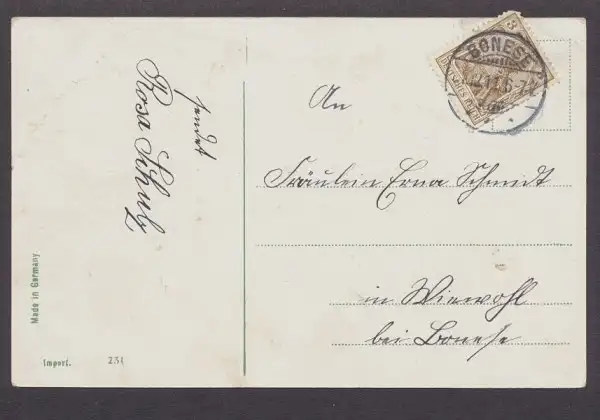 sendet
Rosa Schulz
Made in Germany
Import. 231
BONESE
3
DEUTSCHES REICH
An
Fräulein Erna Schmidt
in Wiewohl
bei Bonese